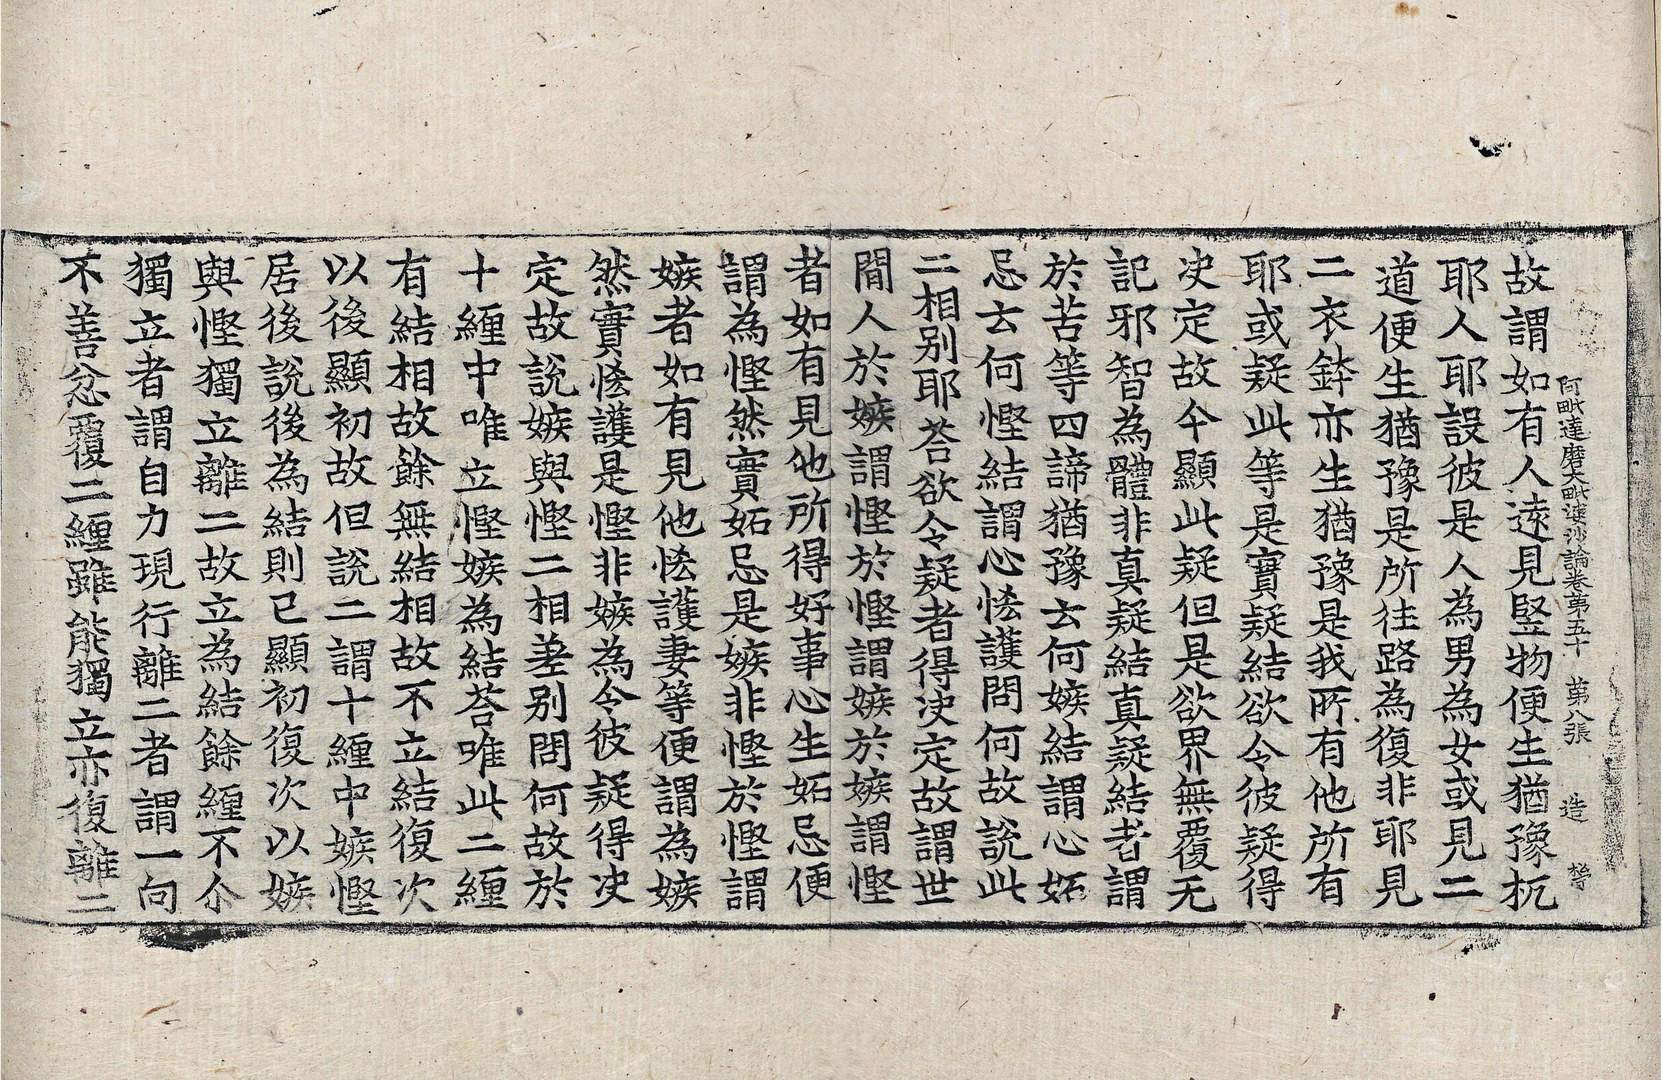 阿毗達磨大毗婆沙論卷第五十 苐八張 造
故謂如有人遠見竪物便生猶豫杌
耶人耶設彼是人為男為女或見二
道便生猶豫是所往路為復非耶見
二衣鉢亦生猶豫是我所有他所有
耶或疑此等是實疑結欲令彼疑得
决定故今顯此疑但是欲界無覆无
記邪智為體非真疑結真疑結者謂
於苦等四諦猶豫云何嫉結謂心妬
忌云何慳結謂心悋護問何故說此
二相别耶荅欲令疑者得决定故謂世
間人於嫉謂慳於慳謂嫉於嫉謂慳
者如有見他所得好事心生妬忌便
謂為慳然實妬忌是嫉非慳於慳謂
嫉者如有見他悋護妻等便謂為嫉
然實悋護是慳非嫉為令彼疑得决
定故說嫉與慳二相差别問何故於
十纏中唯立慳嫉為結荅唯此二纏
有結相故餘無結相故不立結復次
以後顯初故但說二謂十纏中嫉慳
居後說後為結則已顯初復次以嫉
與慳獨立離二故立為結餘纏不尒
獨立者謂自力現行離二者謂一向
不善忿覆二纏雖能獨立亦復離二